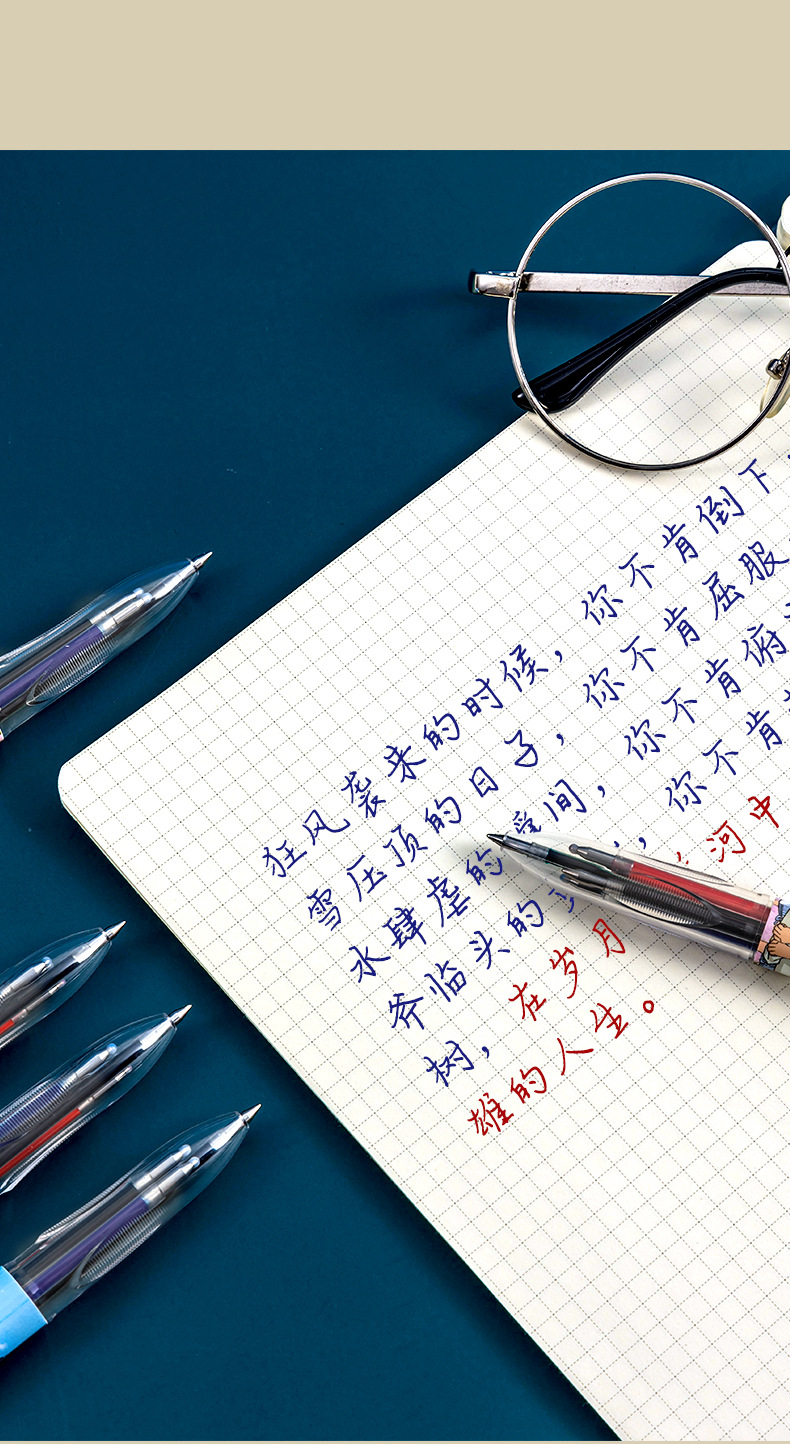 狂风袭来的时候，你不肯倒下，
雪压顶的日子，你不肯屈服
水肆虐的瞬间，你不肯俯
斧临头的，你不肯
树，在岁月河中
雄的人生。